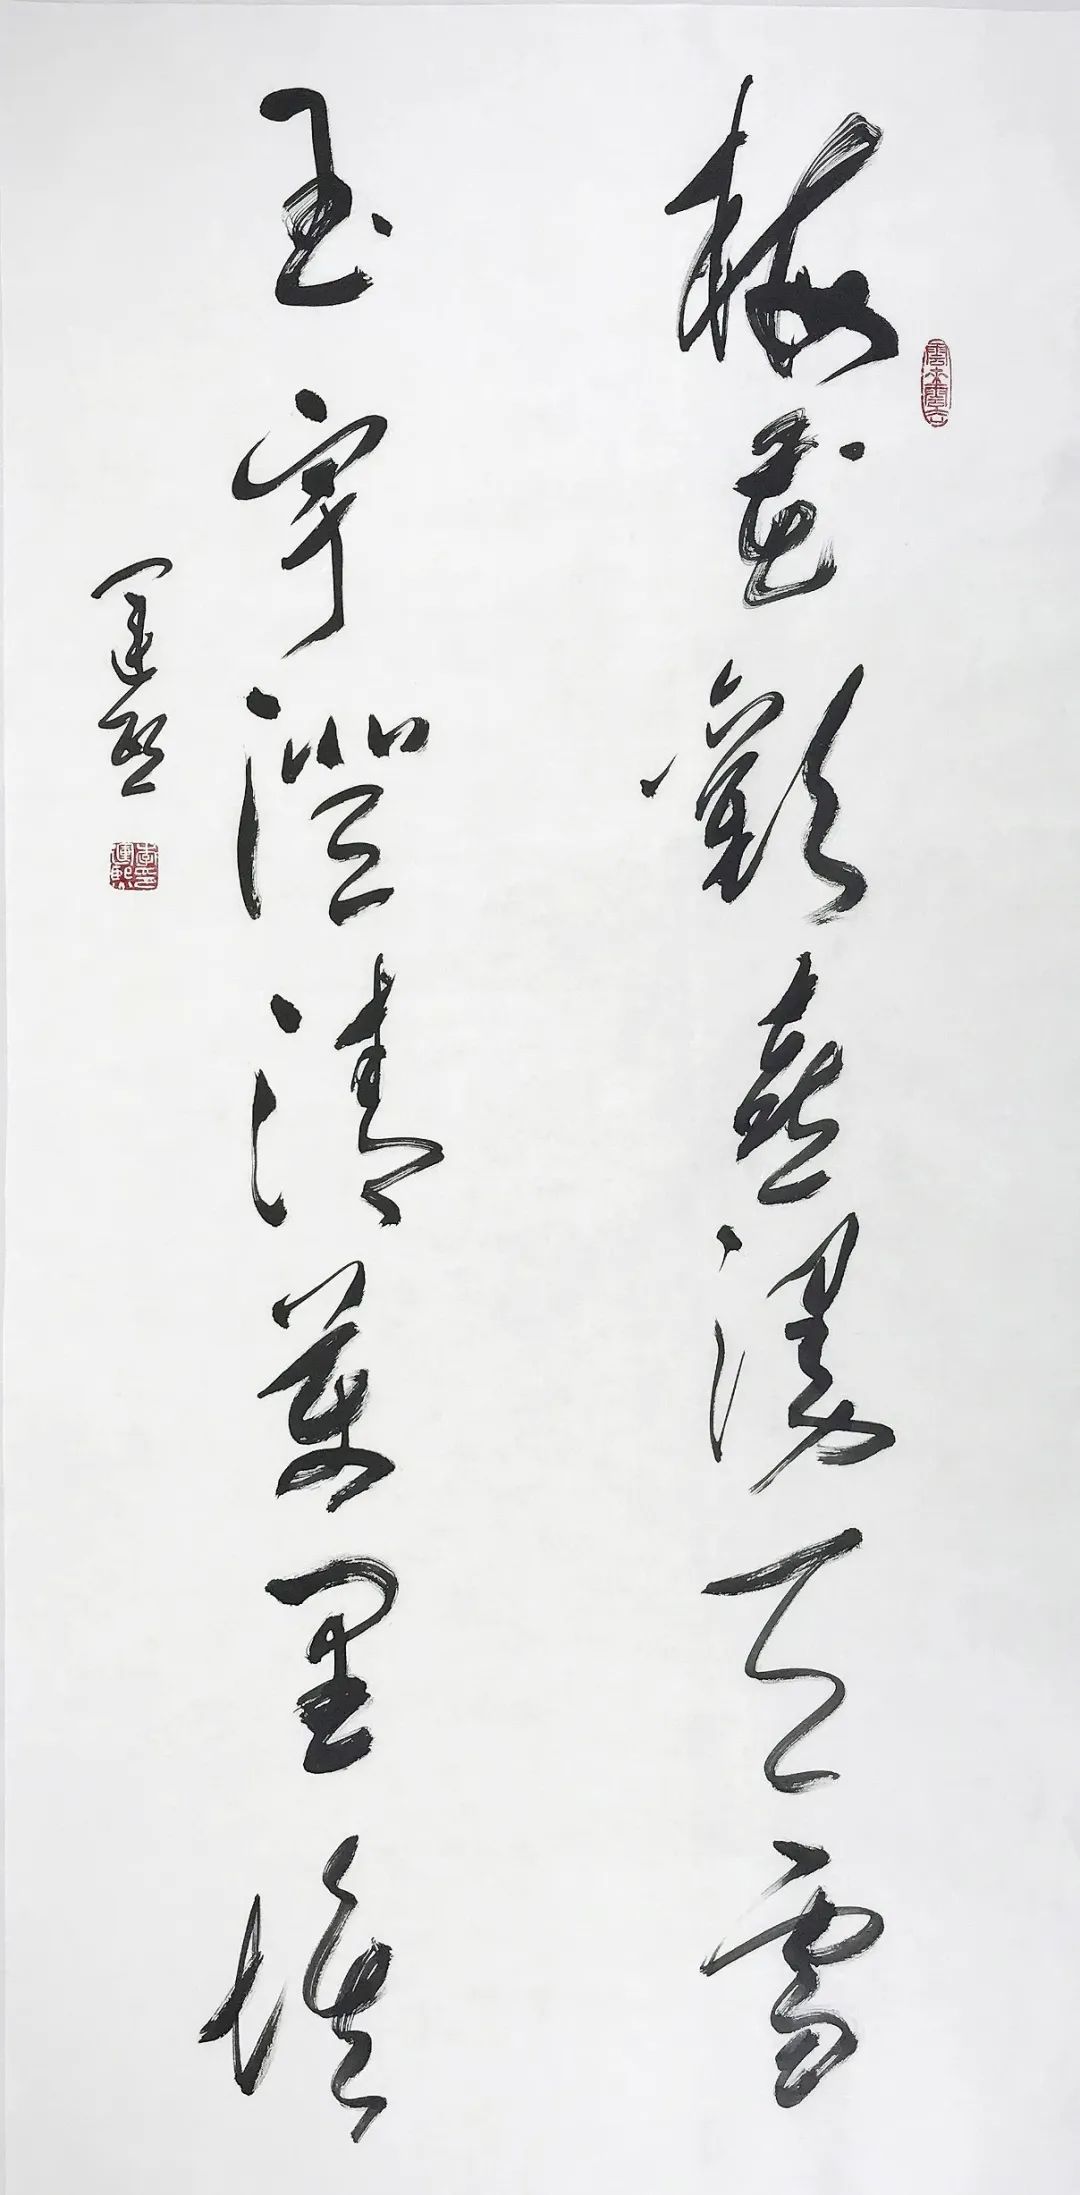 梅花歡喜漫天雪
玉宇澄清萬里埃
運熙